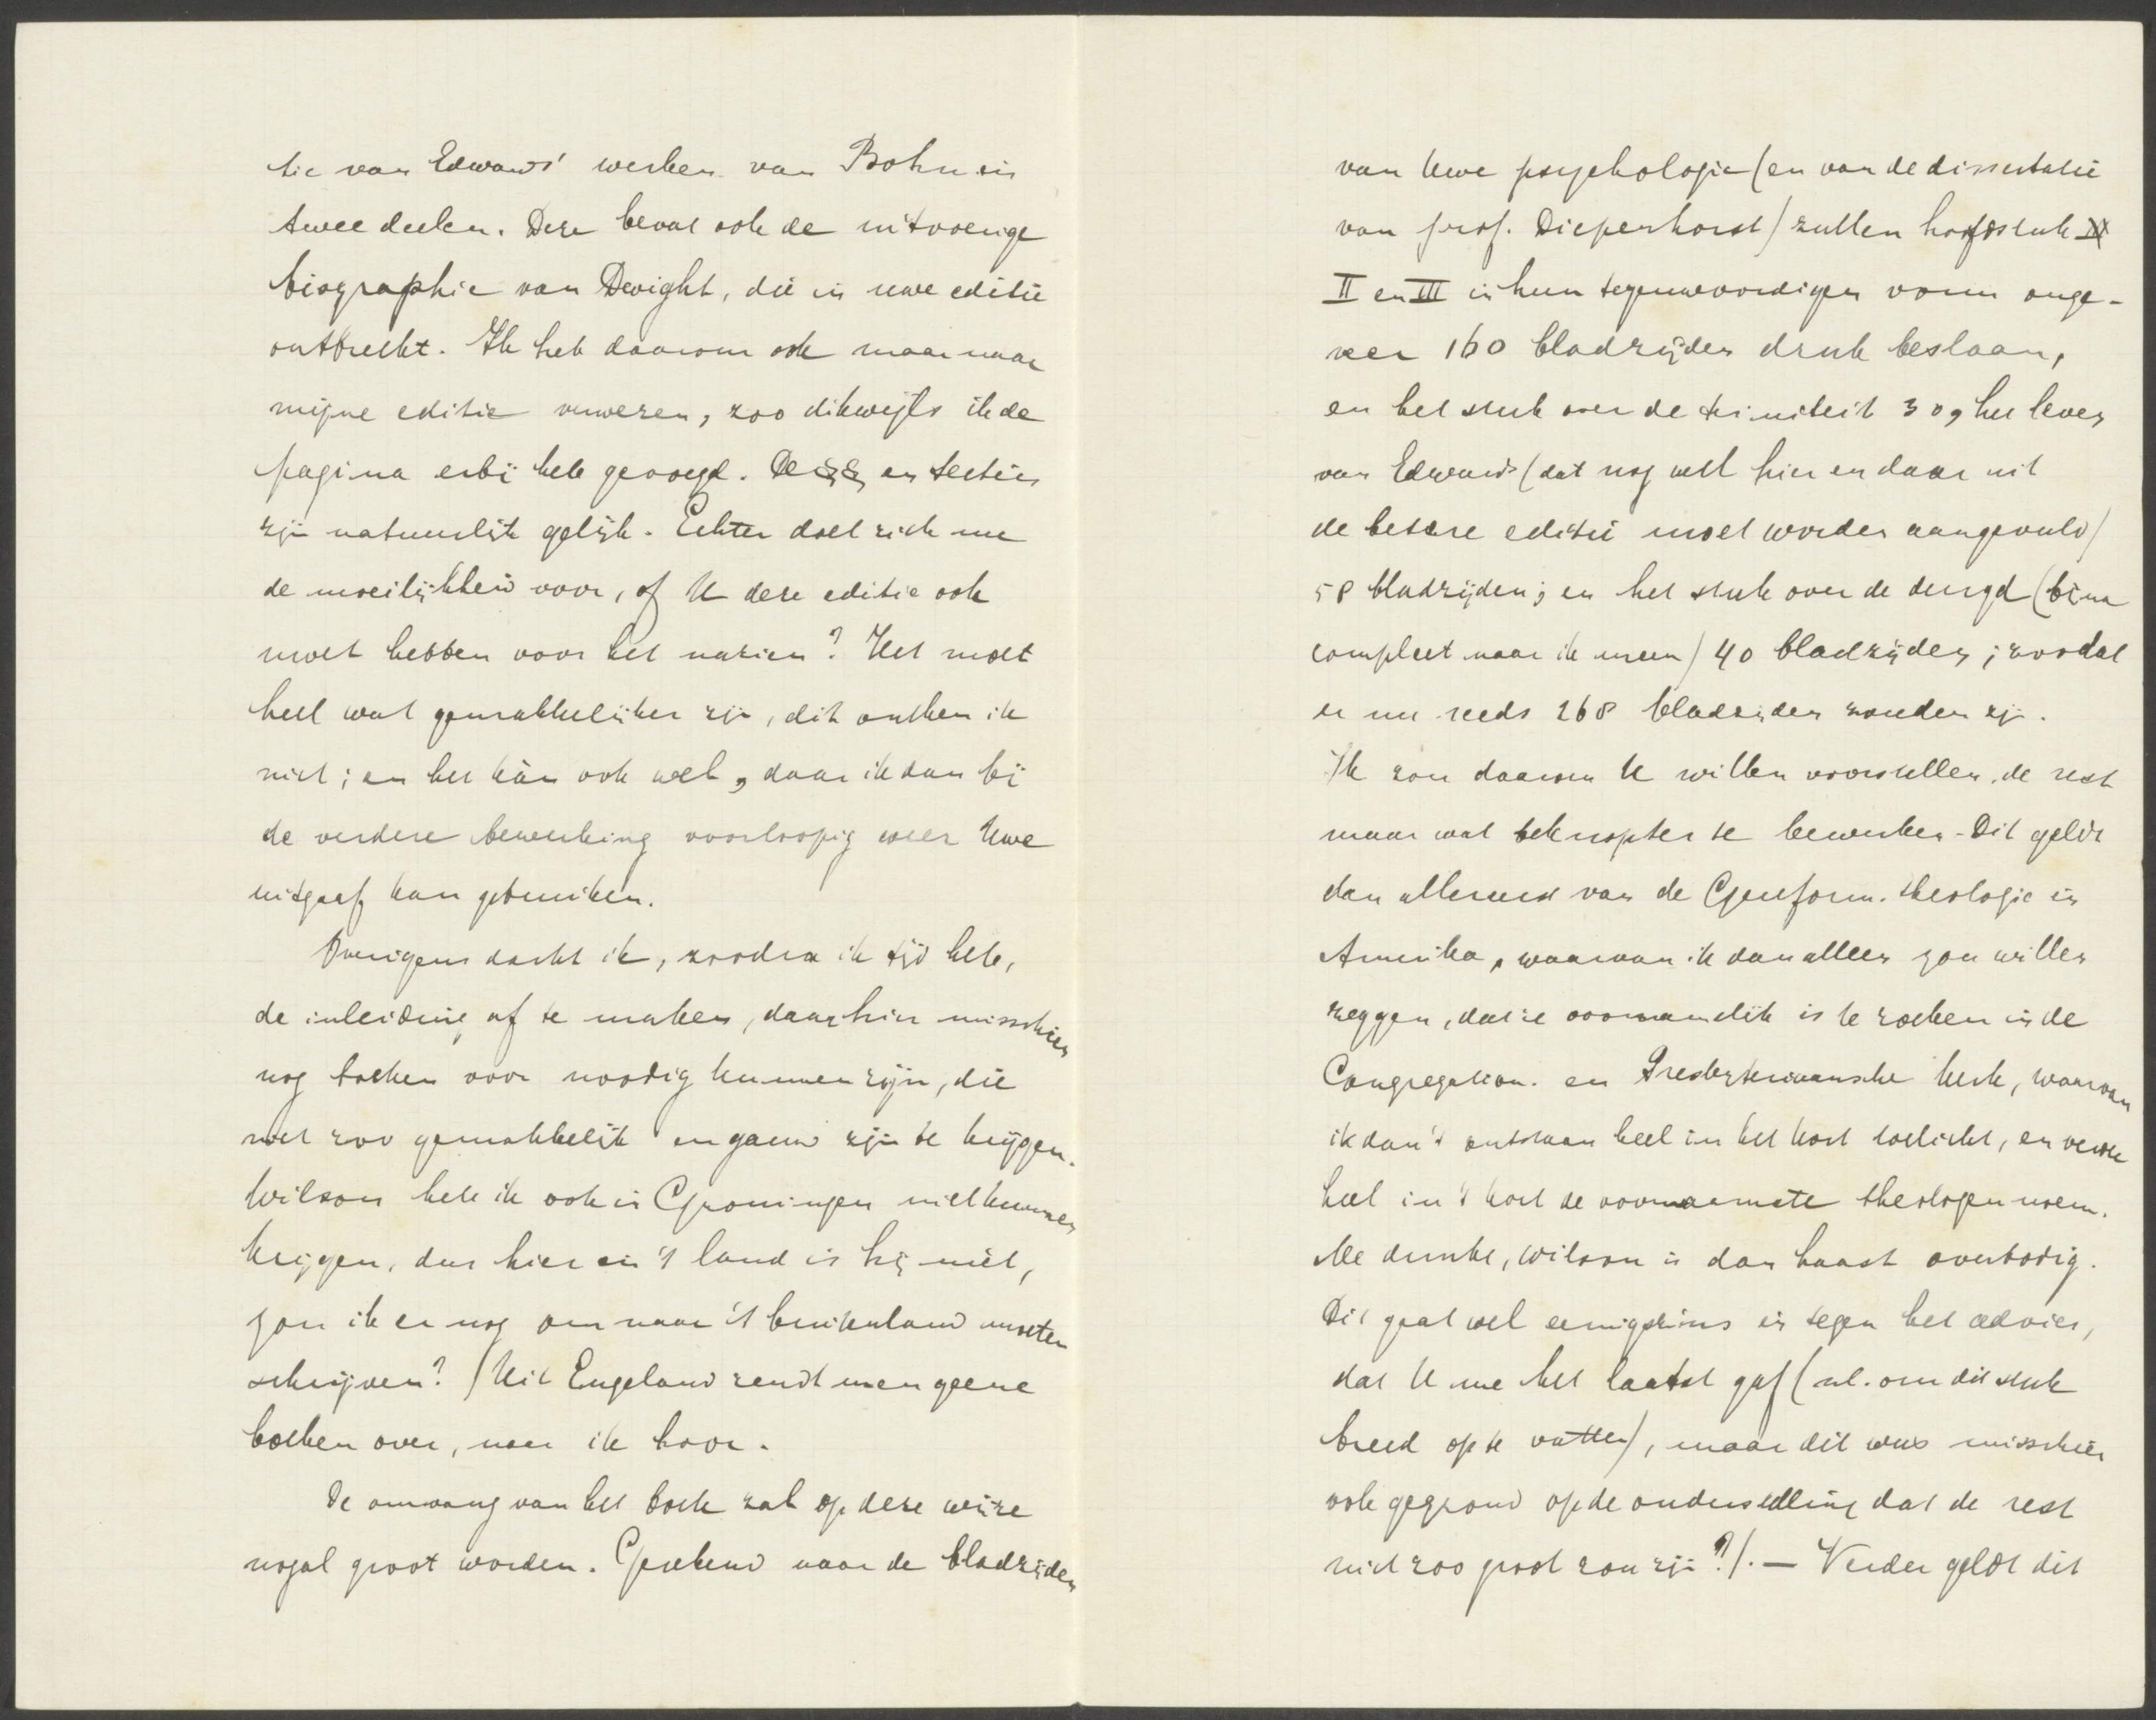 tie van Edwards' werken van Bohn in
twee deelen. Deze bevat ook de uitvoerige
biographie van Dwight, die in uwe editie
ontbreekt. Ik heb daarom ook maar naar
mijne editie verwezen, zoo dikwijls ik de
pagina erbij heb gevoegd. De §§ en secties
zijn natuurlijk gelijk. Echter doet zich me
de moeilijkheid voor, of U deze editie ook
moet hebben voor het nazien? Het moet
heel wat gemakkelijker zijn, dit ontken ik
niet; en het kàn ook wel, daar ik dan bij
de verdere bewerking voorloopig weer Uwe
uitgaaf kan gebruiken.
Overigens dacht ik, zoodra ik tijd heb,
de inleiding af te maken, daar hier misschien
nog boeken voor noodig kunnen zijn, die
niet zoo gemakkelijk en gauw zijn te krijgen.
Wilson heb ik ook in Groningen niet kunnen
krijgen, dus hier in 't land is hij niet,
zou ik er nog om naar 't buitenland moeten
schrijven? (Uit Engeland zendt men geene
boeken over, naar ik hoor.
De omvang van het boek zal op deze wijze
nogal groot worden. Gerekend naar de bladzijden
van Uwe psychologie (en van de dissertatie
van prof. Diepenhorst) zullen hoofdstuk
II en III in hun tegenwoordigen vorm onge-
veer 160 bladzijden druk beslaan,
en het stuk over de triniteit 30, het leven
van Edwards (dat nog wel hier en daar uit
de betere editie moet worden aangevuld)
58 bladzijden; en het stuk over de deugd (bijna
compleet naar ik meen) 40 bladzijden; zoodat
er nu reeds 268 bladzijden zouden zijn.
Ik zou daarom U willen voorstellen, de rest
maar wat beknopter te bewerken. Dit geldt
dan allereerst van de Gereform. theologie in
Amerika, waarvan ik dan alleen zou willen
zeggen, dat ze voornamelijk is te zoeken in de
Congregation. en Presbyteriaansche kerk, waarvan
ik dan 't ontstaan heel in het kort toelicht, en verder
heel in 't kort de voornaamste theologen noem.
Me dunkt, Wilson is dan haast overbodig.
Dit gaat wel eenigszins in tegen het advies,
dat U me het laatst gaf (nl. om dit stuk
breed op te vatten), maar dit was misschien
ook gegrond op de onderstelling dat de rest
niet zoo groot zou zijn?). — Verder geldt dit